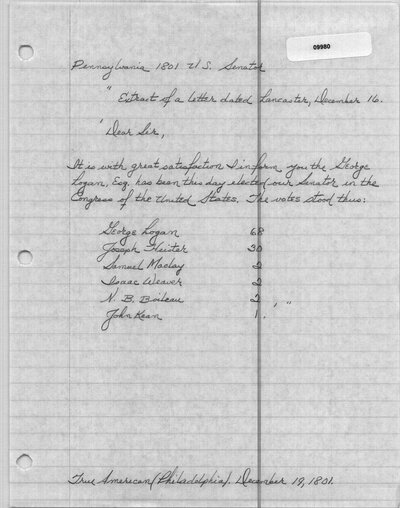 09980
Pennsylvania 1801 U.S. Senator
" Extract of a letter dated Lancaster, December 16.
"Dear Sir,
It is with great satisfaction I inform you the George
Logan, Esq. has been this day elected our Senator in the
Congress of the United States. The votes stood thus:
George Logan 68
Joseph Heister 20
Samuel Maclay 2
Isaac Weaver 2
N. B. Boileau 2 , "
John Kean 1.
True American (Philadelphia). December 19, 1801.